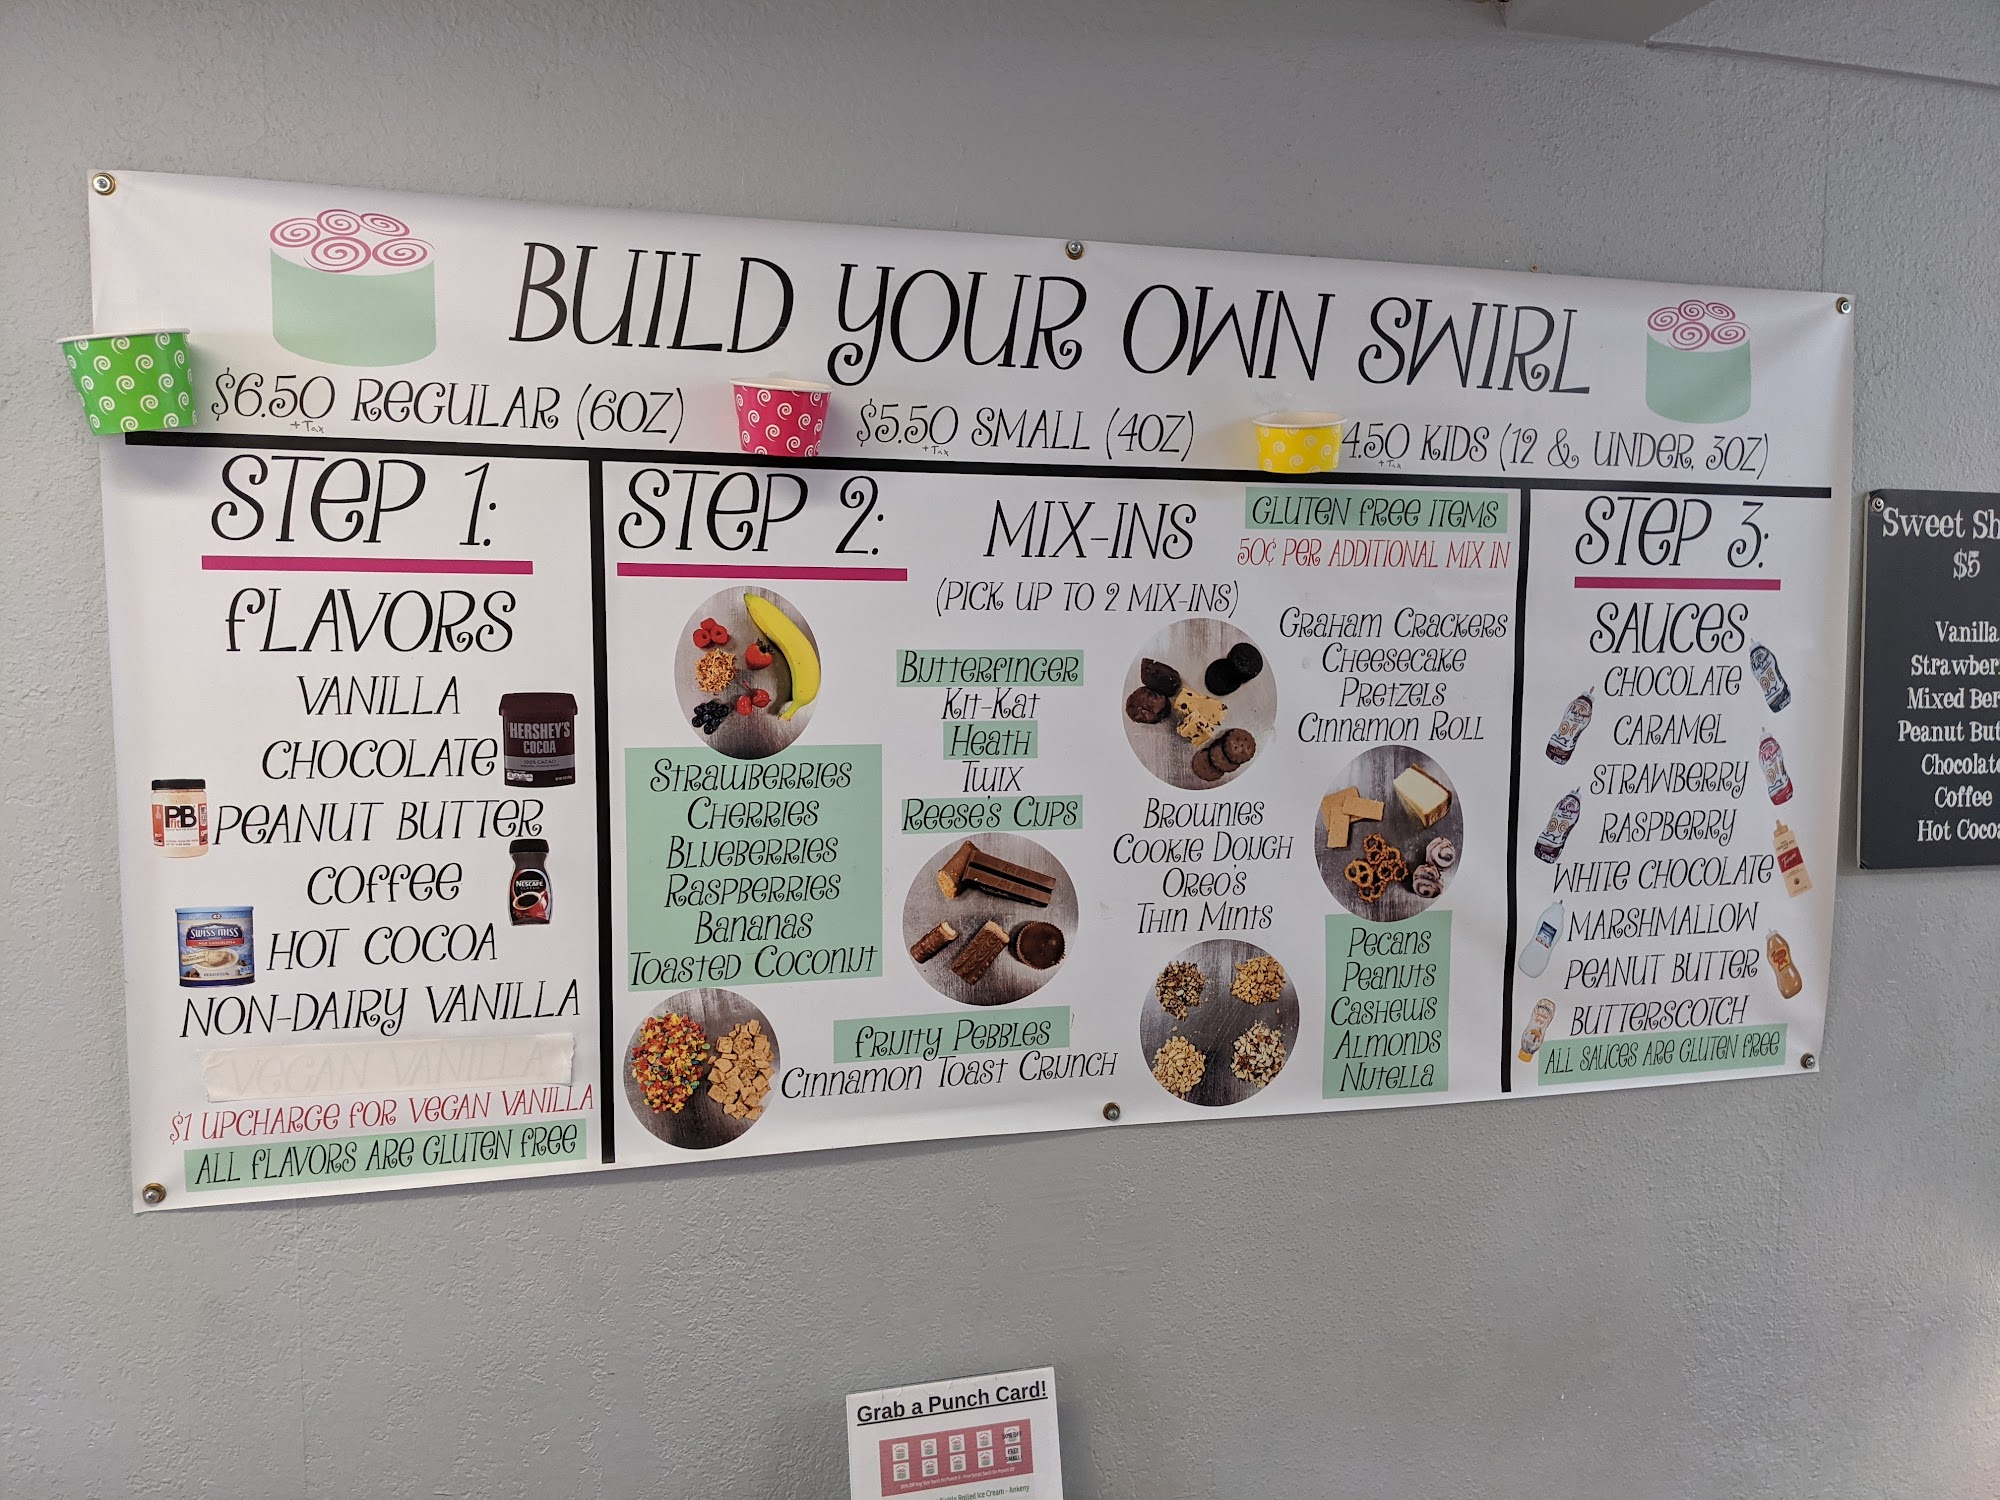 BUILD YOUR OWN SWIRL
$6.50 REGULAR (6OZ)
+ Tax
$5.50 SMALL (4OZ)
+ Tax
4.50 KIDS (12 & UNDER, 3OZ)
+ Tax
STEP 1:
FLAVORS
VANILLA
CHOCOLATE
PEANUT BUTTER
COFFEE
HOT COCOA
NON-DAIRY VANILLA
VEGAN VANILLA
$1 UPCHARGE FOR VEGAN VANILLA
ALL FLAVORS ARE GLUTEN FREE
HERSHEY'S
COCOA
100% CACAO
PB
fit
NESCAFÉ
SWISS MISS
STEP 2:
MIX-INS
(PICK UP TO 2 MIX-INS)
GLUTEN FREE ITEMS
50¢ PER ADDITIONAL MIX IN
STRAWBERRIES
CHERRIES
BLUEBERRIES
RASPBERRIES
BANANAS
TOASTED COCONUT
BUTTERFINGER
KIT-KAT
HEATH
TWIX
REESE'S CUPS
FRUITY PEBBLES
CINNAMON TOAST CRUNCH
BROWNIES
COOKIE DOUGH
OREO'S
THIN MINTS
GRAHAM CRACKERS
CHEESECAKE
PRETZELS
CINNAMON ROLL
PECANS
PEANUTS
CASHEWS
ALMONDS
NUTELLA
STEP 3:
SAUCES
CHOCOLATE
CARAMEL
STRAWBERRY
RASPBERRY
WHITE CHOCOLATE
MARSHMALLOW
PEANUT BUTTER
BUTTERSCOTCH
ALL SAUCES ARE GLUTEN FREE
Sweet Sh
$5
Vanilla
Strawber
Mixed Ber
Peanut But
Chocolate
Coffee
Hot Coco
Grab a Punch Card!
Rolled Ice Cream - Ankeny